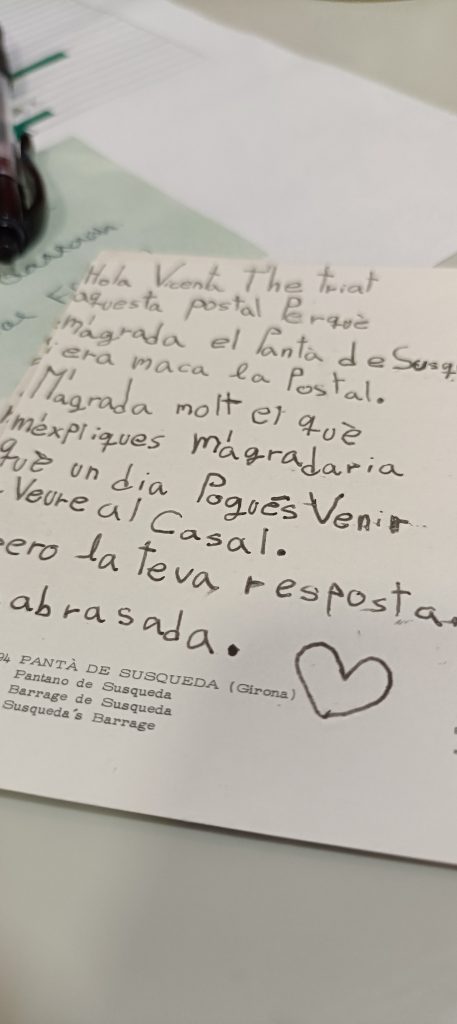 Hola Vicenta The triat
aquesta postal Perquè
m'agrada el Pantà de Susq
i era maca la Postal.
M'agrada molt el què
m'éxpliques m'agradaria
què un dia Pogués Venir
Veure al Casal.
pero la teva resposta.
abrasada.
94 PANTÀ DE SUSQUEDA (Girona)
Pantano de Susqueda
Barrage de Susqueda
Susqueda's Barrage